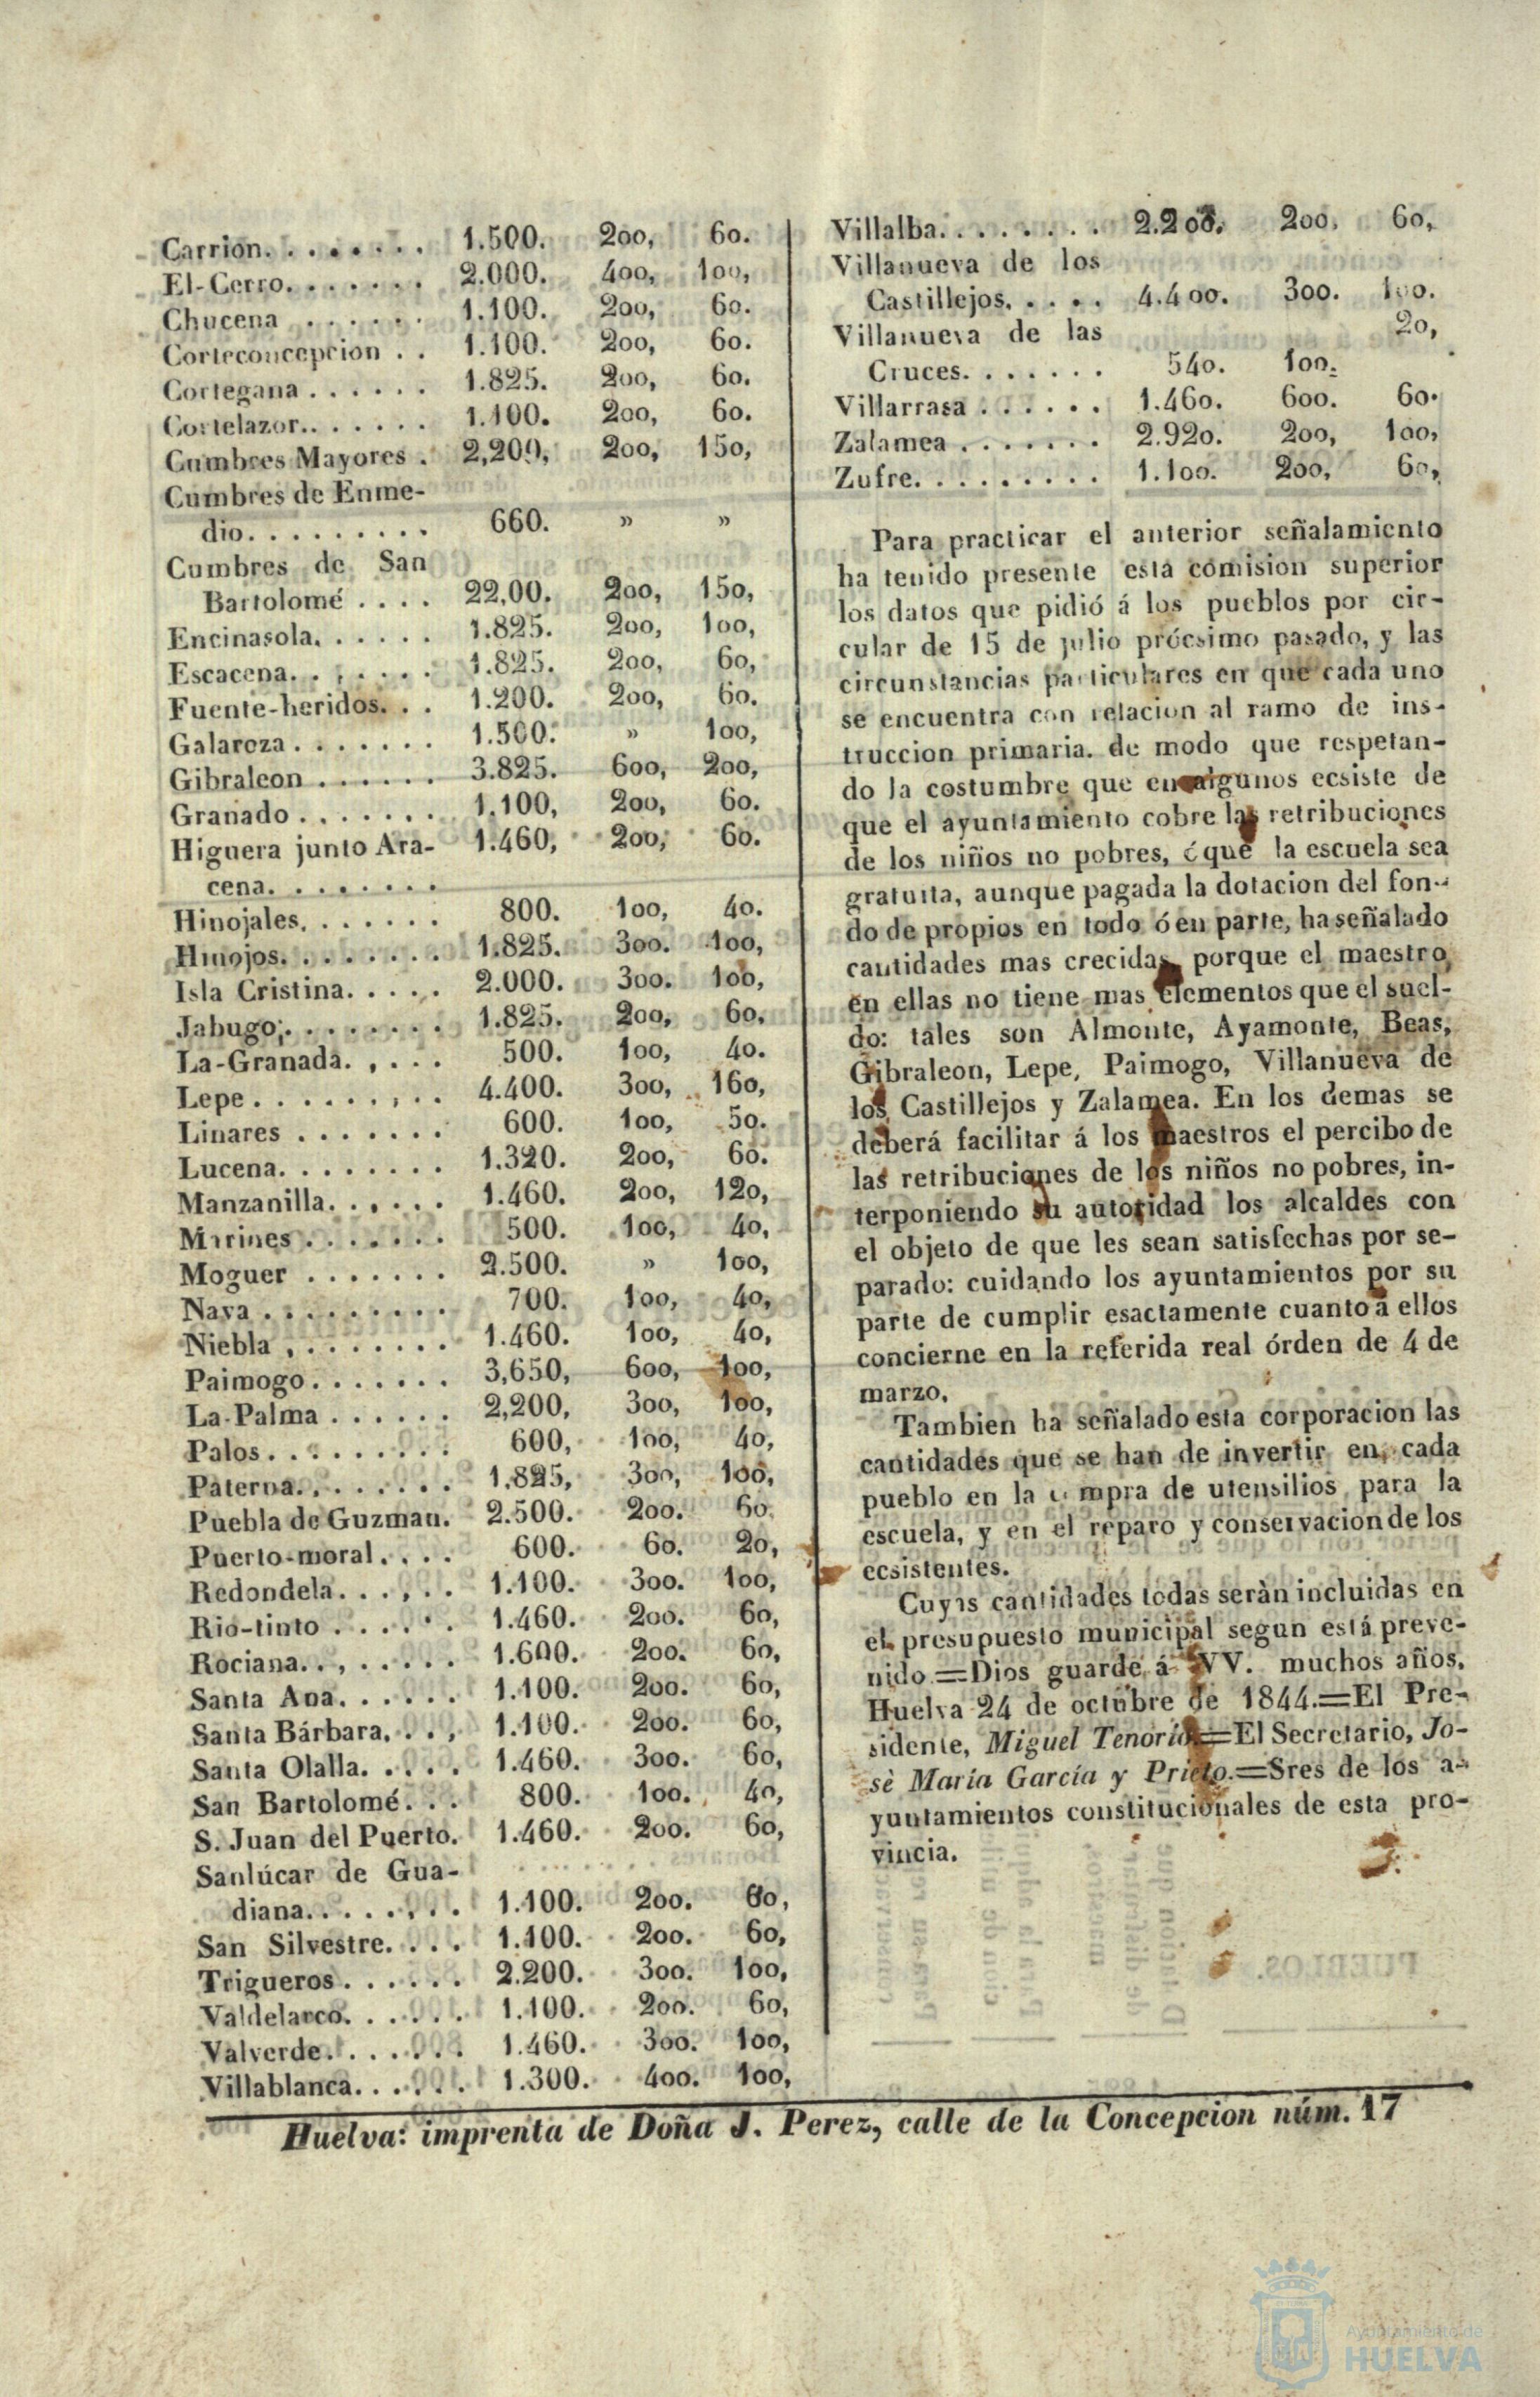 Carrion. . . . . . . . 1.500. 200, 60.
El-Cerro. . . . . . . 2.000. 400, 100,
Chucena . . . . . . 1.100. 200, 60.
Corteconcepcion . . 1.100. 200, 60.
Cortegana . . . . . . 1.825. 200, 60.
Cortelazor.. . . . . . 1.100. 200, 60.
Cumbres Mayores . 2,200, 200, 150,
Cumbres de Enme-
dio. . . . . . . . . 660. » »
Cumbres de San
Bartolomé . . . . 22,00. 200, 150,
Encinasola. . . . . . 1.825. 200, 100,
Escacena. . , . . . . 1.825. 200, 60,
Fuente-heridos. . . 1.200. 200, 60.
Galaroza . . . . . . . 1.500. » 100,
Gibraleon . . . . . . 3.825. 600, 200,
Granado . . . . . . . 1.100, 200, 60.
Higuera junto Ara- 1.460, 200, 60.
cena. . . . . . . .
Hinojales. . . . . . . 800. 100, 40.
Hinojos. . . . . . . . 1.825. 300. 100,
Isla Cristina. . . . . 2.000. 300. 100,
Jabugo,. . . . . . . . 1.825. 200, 60,
La-Granada. , . . . 500. 100, 40.
Lepe . . . . . . . , . . 4.400. 300, 160,
Linares . . . . . . . 600. 100, 50.
Lucena. . . . . . . . 1.320. 200, 60.
Manzanilla. . , . . . 1.460. 200, 120,
Marines . . . . . . . 500. 100, 40,
Moguer . . . . . . . 2.500. » 100,
Nava . . . . . . . . . 700. 100, 40,
Niebla , . . . . . . . 1.460. 100, 40,
Paimogo . . . . . . . 3,650, 600, 100,
La-Palma . . . . . . 2,200, 300, 100,
Palos . . . . . . . . . 600, 100, 40,
Paterna. . . . . . . . 1,825, 300, 100,
Puebla de Guzman. 2.500. 200. 60.
Puerto-moral . . . . 600. 60. 20,
Redondela. . . , . . 1.100. 300. 100,
Rio-tinto . . . . . . 1.460. 200. 60,
Rociana. . , . . . . . 1.600. 200. 60,
Santa Ana. . . . . . 1.100. 200. 60,
Santa Bárbara. . . , 1.100. 200. 60,
Santa Olalla. . . . . 1.460. 300. 60,
San Bartolomé. . . 800. 100. 40,
S. Juan del Puerto. 1.460. 200. 60,
Sanlúcar de Gua-
diana. . . . . , . . 1.100. 200. 60,
San Silvestre. . . . 1.100. 200. 60,
Trigueros . . . . . . 2.200. 300. 100,
Valdelarco. . . . . . 1.100. 200. 60,
Valverde. . . . . . . 1.460. 300. 100,
Villablanca. . . . . . 1.300. 400. 100,
Villalba. . . . . . . . 2.200. 200, 60,
Villanueva de los
Castillejos. . . . . 4.400. 300. 100.
Villanueva de las 20,
Cruces. . . . . . . 540. 100.
Villarrasa . . . . . . 1.460. 600. 60.
Zalamea . . . . . . . 2.920. 200, 100,
Zufre. . . . . . . . . 1.100. 200, 60,
Para practicar el anterior señalamiento
ha tenido presente esta comision superior
los datos que pidió á los pueblos por cir-
cular de 15 de julio prócsimo pasado, y las
circunstancias particulares en que cada uno
se encuentra con relacion al ramo de ins-
truccion primaria. de modo que respetan-
do la costumbre que en algunos ecsiste de
que el ayuntamiento cobre las retribuciones
de los niños no pobres, ó que la escuela sea
gratuita, aunque pagada la dotacion del fon-
do de propios en todo ó en parte, ha señalado
cantidades mas crecidas, porque el maestro
en ellas no tiene mas elementos que el suel-
do: tales son Almonte, Ayamonte, Beas,
Gibraleon, Lepe, Paimogo, Villanueva de
los Castillejos y Zalamea. En los demas se
deberá facilitar á los maestros el percibo de
las retribuciones de los niños no pobres, in-
terponiendo su autoridad los alcaldes con
el objeto de que les sean satisfechas por se-
parado: cuidando los ayuntamientos por su
parte de cumplir esactamente cuanto á ellos
concierne en la referida real órden de 4 de
marzo.
Tambien ha señalado esta corporacion las
cantidades que se han de invertir en cada
pueblo en la compra de utensilios para la
escuela, y en el reparo y conservacion de los
ecsistentes.
Cuyas cantidades todas seràn incluidas en
el presupuesto municipal segun está preve-
nido.=Dios guarde á VV. muchos años.
Huelva 24 de octubre de 1844.=El Pre-
sidente, Miguel Tenorio=El Secretario, Jo-
sè María García y Prieto.=Sres de los a-
yuntamientos constitucionales de esta pro-
vincia.
Huelva: imprenta de Doña J. Perez, calle de la Concepcion núm. 17
Ayuntamiento de
HUELVA